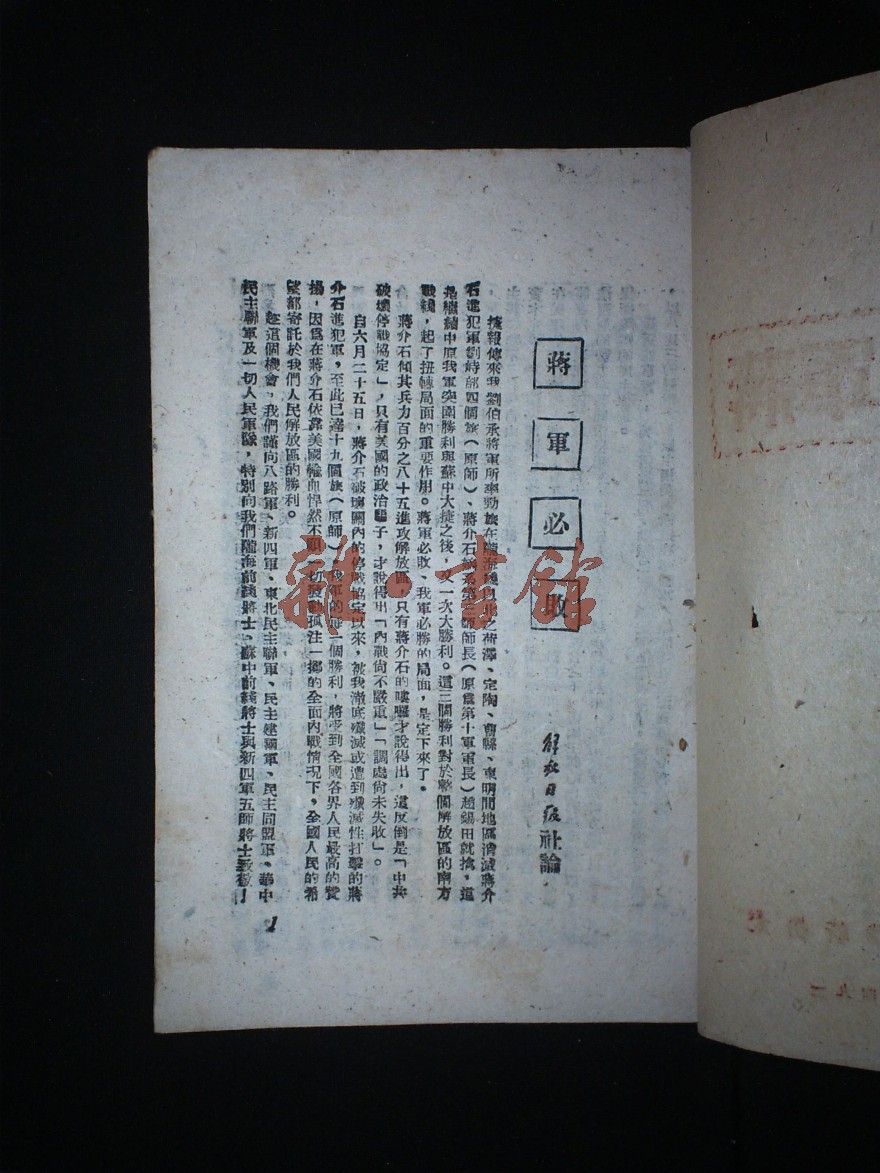 蔣軍必敗
解放日報社論
捷報傳來我劉伯承將軍所率勁旅在隴海綫以北之荷澤、定陶、曹縣、東明間地區消滅蔣介
石進犯軍劉峙部四個旅(原師)、蔣介石嫡系第三師師長(原爲第十軍軍長)趙錫田就擒,這
是繼續中原我軍突圍勝利與蘇中大捷之後,又一次大勝利。這三個勝利對於整個解放區的南方
戰綫,起了扭轉局面的重要作用。蔣軍必敗、我軍必勝的局面,是定下來了。
蔣介石傾其兵力百分之八十五進攻解放區,只有蔣介石的嘍囉才說得出,這反倒是「中共
破壞停戰協定」,只有美國的政治騙子,才說得出「內戰尙不嚴重」「調處尙未失敗」。
自六月二十五日,蔣介石破壞關內的停戰協定以來,被我澈底殲滅或遭到殲滅性打擊的蔣
介石進犯軍,至此已達十九個旅(原師)我軍的每一個勝利,將受到全國各界人民最高的贊
揚,因爲在蔣介石依靠美國輸血悍然不顧一切發動孤注一擲的全面內戰情況下,全國人民的希
望都寄託於我們人民解放區的勝利。
趁這個機會,我們謹向八路軍、新四軍、東北民主聯軍、民主建國軍、民主同盟軍、華中
民主聯軍及一切人民軍隊,特別向我們隴海前綫將士、蘇中前綫將士與新四軍五師將士致敬!
1
雜·書館